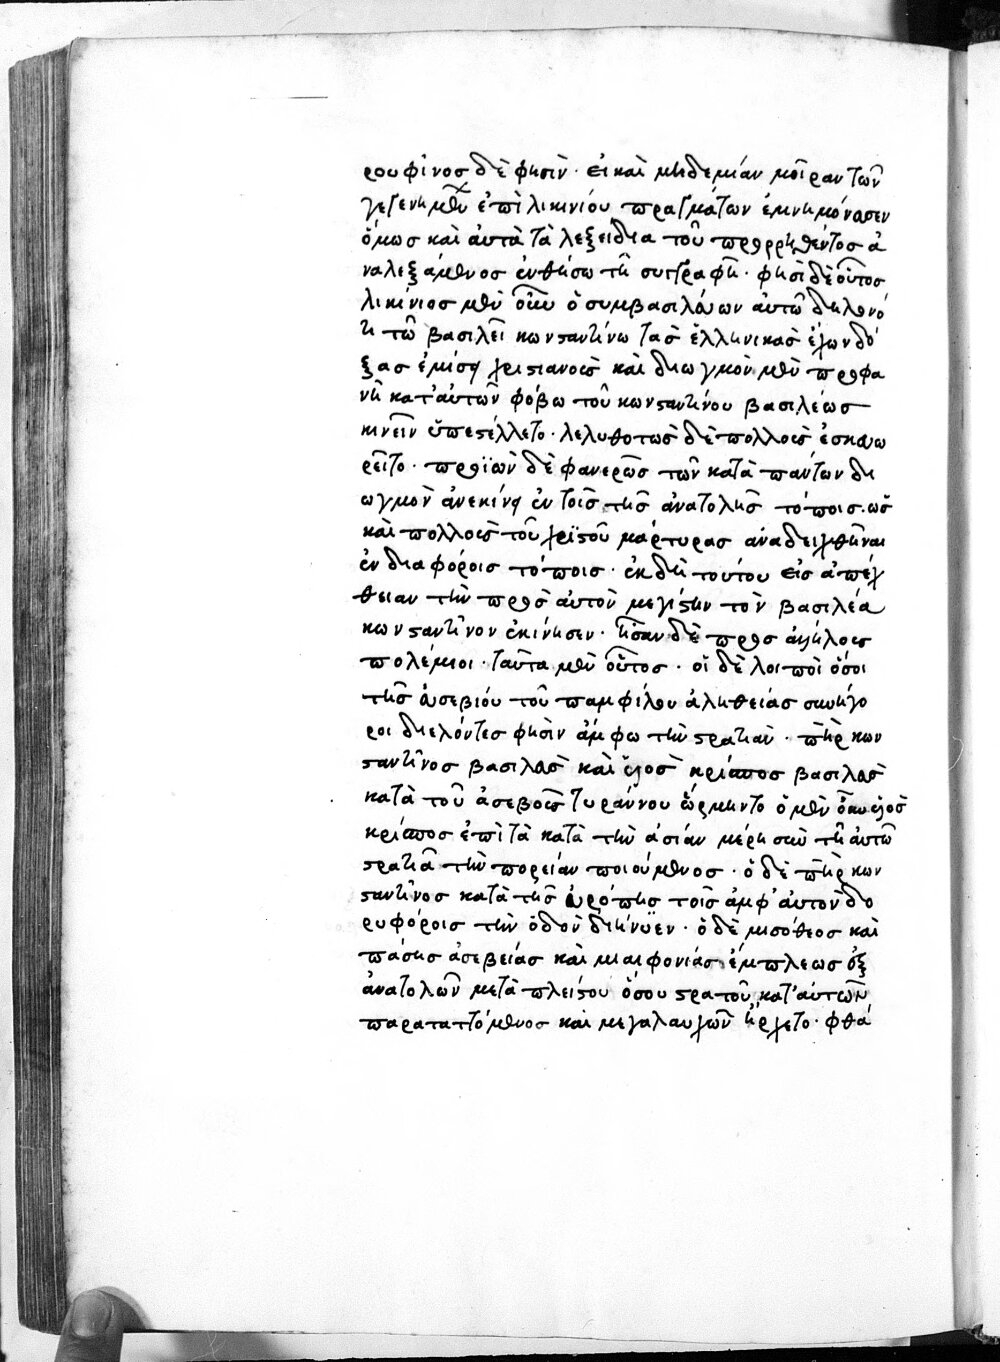 ρουφῖνος δὲ φησὶν · εἰ καὶ μηδεμίαν μοῖραν τῶν
γεγενημένων ἐπὶ λικινίου πραγμάτων ἐμνημόνευσεν
ὅμως καὶ αὐτὰ τὰ λεξείδια τοῦ προρρηθέντος ἀ
ναλεξάμενος ἐνθήσω τῆ συγγραφῆ · φησὶ δὲ οὕτος
λικίνιος μὲν οὖν ὁ συμβασιλεύων αὐτῶ δηλονό
τι τῶ βασιλεῖ κωνσαντίνω τὰς ἑλληνικὰς ἔχων δό
ξας ἐμίσει χριστιανοὺς καὶ διωγμὸν μὲν προφα
νῆ κατ' αὐτῶν φόβω τοῦ κωνσταντίνου βασιλέως
κινεῖν ὑπεστέλλετο · λεληθότως δὲ πολλοὺς ἐσκευω
ρεῖτο · προϊὼν δὲ φανερῶς τῶν κατὰ πάντων δι
ωγμὸν ἀνεκίνει ἐν τοῖς τῆς ἀνατολῆς τόποις · ὡς
καὶ πολλοὺς τοῦ χριστοῦ μάρτυρας ἀναδειχθῆναι
ἐν διαφόροις τόποις · ἐκ δὴ τούτου εἰς ἀπέχ
θειαν τὴν πρὸς αὐτὸν μεγίστην τὸν βασιλέα
κωνσταντῖνον ἐκίνησεν · ἦσαν δὲ πρὸς ἀλλήλους
πολέμιοι · ταῦτα μὲν οὗτος · οἱ δὲ λοιποὶ ὅσοι
τῆς εὐσεβίου τοῦ παμφίλου ἀληθείας συνήγο
ροι διελόντες φησὶν ἄμφω τὴν στρατιὰν · πατὴρ κων
σταντῖνος βασιλεὺς καὶ υἱὸς κρίσπος βασιλεὺς
κατὰ τοῦ ἀσεβοῦς τυράννου ὥρμηντο ὁ μὲν οὖν υἱὸς
κρίσπος ἐπὶ τὰ κατὰ τὴν ἀσίαν μέρη σὺν τῆ αὐτῶν
στρατιᾶ τὴν πορείαν ποιούμενος · ὁ δὲ πατὴρ κων
σταντῖνος κατὰ τῆς εὐρώπης τοῖς ἀμφ' αὐτὸν δο
ρυφόροις τὴν ὁδὸν διήνυεν · ὁ δὲ μισόθεος καὶ
πάσης ἀσεβείας καὶ μιαιφονίας ἔμπλεως ἐξ
ἀνατολῶν μετὰ πλείστου ὅσου στρατοῦ κατ' αὐτῶν
παρατατόμενος καὶ μεγαλαυχῶν ἤρχετο · φθά